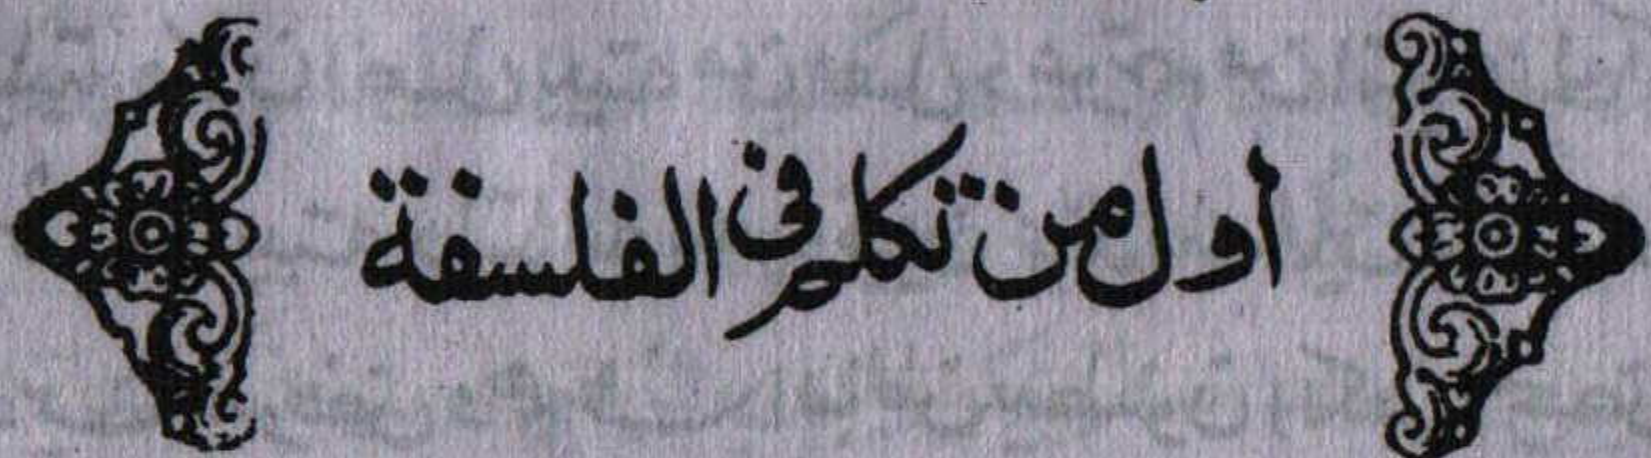 أول من تكلم في الفلسفة